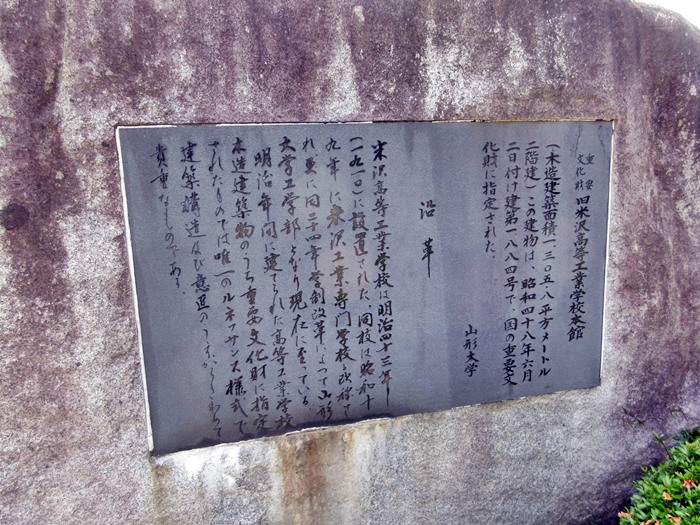 重要文化財 旧米沢高等工業学校本館
(木造建築面積一三〇五・八平方メートル
二階建)この建物は、昭和四十八年六月
二日付け建第一八八四号で、国の重要文
化財に指定された。
山形大学
沿革
米沢高等工業学校は明治四十三年
(一九一〇)に設置された。同校は昭和十
九年に米沢工業専門学校と改称さ
れ更に同二十四年学制改革によって山形
大学工学部となり現在に至っている。
明治年間に建てられた高等工業学校
木造建築物のうち重要文化財に指定
されたものでは唯一のルネッサンス様式で
建築構造及び意匠のうえからきわめて
貴重なものである。